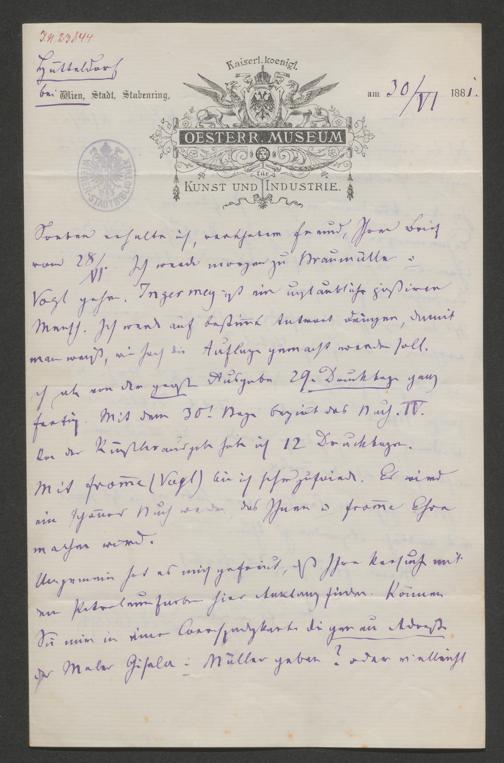 J.N. 23844
Hütteldorf
bei Wien, Stadt, Stubenring,
Kaiserl. koenigl.
OESTERR. MUSEUM
für
KUNST UND INDUSTRIE.
am 30/VI 1881.
WIENER STADTBIBLIOTHEK
Soeben erhalte ich, verehrtester Freund, Ihren Brief
vom 28/VI. Ich werde morgen zu Braumüller u
Vogl gehen. ist ein unglaublich
Mensch. Ich werde auf bestimmte Antwort dringen, damit
man weiß, wie hoch die Auflage gemacht werden soll.
ich als von der Ausgabe 29. Druckbogen ganz
fertig. Mit dem 30! Bogen beginnt das Buch. IV.
Von der Künstlerausgabe habe ich 12 Druckbogen.
Mit Fromme (Vogl) bin ich sehr zufrieden. Es wird
ein schönes Buch werden, das Ihnen u Fromme Ehre
machen wird.
Ungemein hat es mich gefreut, daß Ihre Versuche mit
den Petroleumfarben hier Anklang finden. Können
Sie mir in einer Correspondenzkarte die genaue Adresse
der Maler Gisela u Müller geben? oder vielleicht